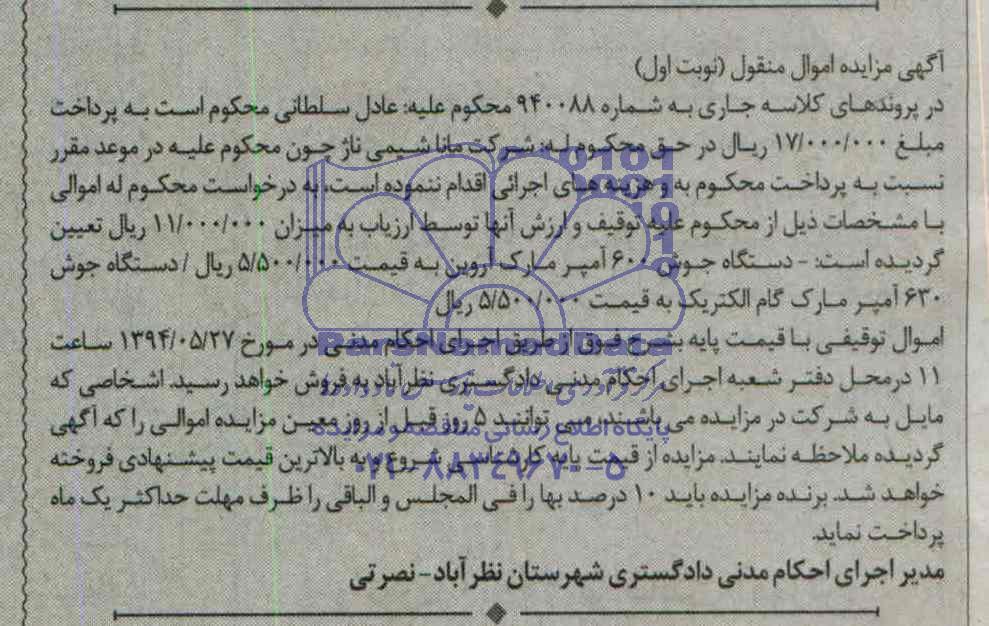 آگهی مزایده اموال منقول (نوبت اول)
در پروندهای کلاسه جاری به شماره ۹۴۰۰۸۸ محکوم علیه: عادل سلطانی محکوم است به پرداخت
مبلغ ۱۷/۰۰۰/۰۰۰ ریال در حق محکوم له: شرکت مانا شیمی ناژ چون محکوم علیه در موعد مقرر
نسبت به پرداخت محکوم به و هزینه های اجرائی اقدام ننموده است، به درخواست محکوم له اموالی
با مشخصات ذیل از محکوم علیه توقیف و ارزش آنها توسط ارزیاب به میزان ۱۱/۰۰۰/۰۰۰ ریال تعیین
گردیده است: - دستگاه جوش ۶۰۰ آمپر مارک آروین به قیمت ۵/۵۰۰/۰۰۰ ریال / دستگاه جوش
۶۳۰ آمپر مارک گام الکتریک به قیمت ۵/۵۰۰/۰۰۰ ریال
اموال توقیفی با قیمت پایه بشرح فوق از طریق اجرای احکام مدنی در مورخ ۱۳۹۴/۰۵/۲۷ ساعت
۱۱ درمحل دفتر شعبه اجرای احکام مدنی دادگستری نظرآباد به فروش خواهد رسید. اشخاصی که
مایل به شرکت در مزایده می باشند، می توانند ۵ روز قبل از روز معین مزایده اموالی را که آگهی
گردیده ملاحظه نمایند. مزایده از قیمت پایه کارشناسی شروع و به بالاترین قیمت پیشنهادی فروخته
خواهد شد. برنده مزایده باید ۱۰ درصد بها را فی المجلس و الباقی را ظرف مهلت حداکثر یک ماه
پرداخت نماید.
مدیر اجرای احکام مدنی دادگستری شهرستان نظرآباد - نصرتی
ParsNamadData
پایگاه اطلاع رسانی مناقصه و مزایده
۰۲۱-۸۸۳۴۹۶۷۰-۵